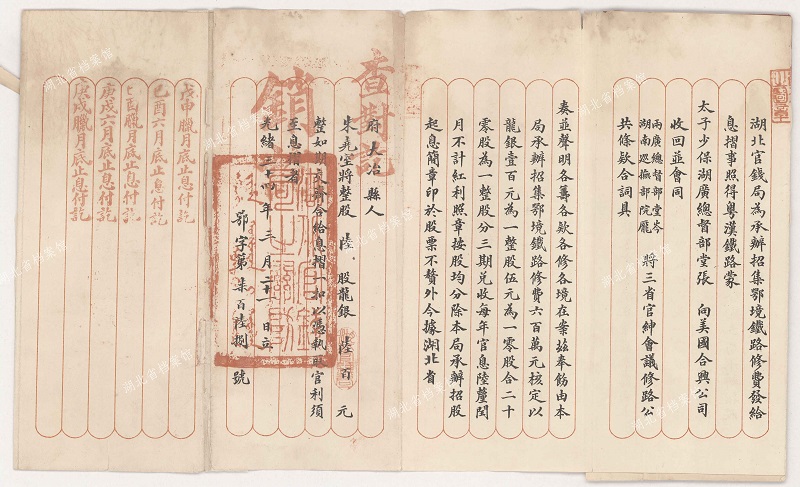 湖北官錢局為承辦招集鄂境鐵路修費發給
息摺事照得粵漢鐵路蒙
太子少保湖廣總督部堂張 向美國合興公司
收回並會同
兩廣總督部堂岑
湖南巡撫部院龐
將三省官紳會議修路公
共條欵合詞具
奏並聲明各籌各欵各修各境在案茲奉飭由本
局承辦招集鄂境鐵路修費六百萬元核定以
龍銀壹百元為一整股伍元為一零股合二十
零股為一整股分三期兌收每年官息陸釐閏
月不計紅利照章按股均分除本局承辦招股
起息簡章印於股票不贅外今據湖北省
府大冶縣人
朱堯室將整股 陸 股龍銀 陸百 元
整如期交齊合給息摺一扣以憑執取官利須
至息摺者
光緒三十四年三月二十一日立
鄂字第柒百陸捌號
查對訖
銷
戊申臘月底止息付訖
己酉六月底止息付訖
己酉臘月底止息付訖
庚戌六月底止息付訖
庚戌臘月底止息付訖
湖北省檔案館